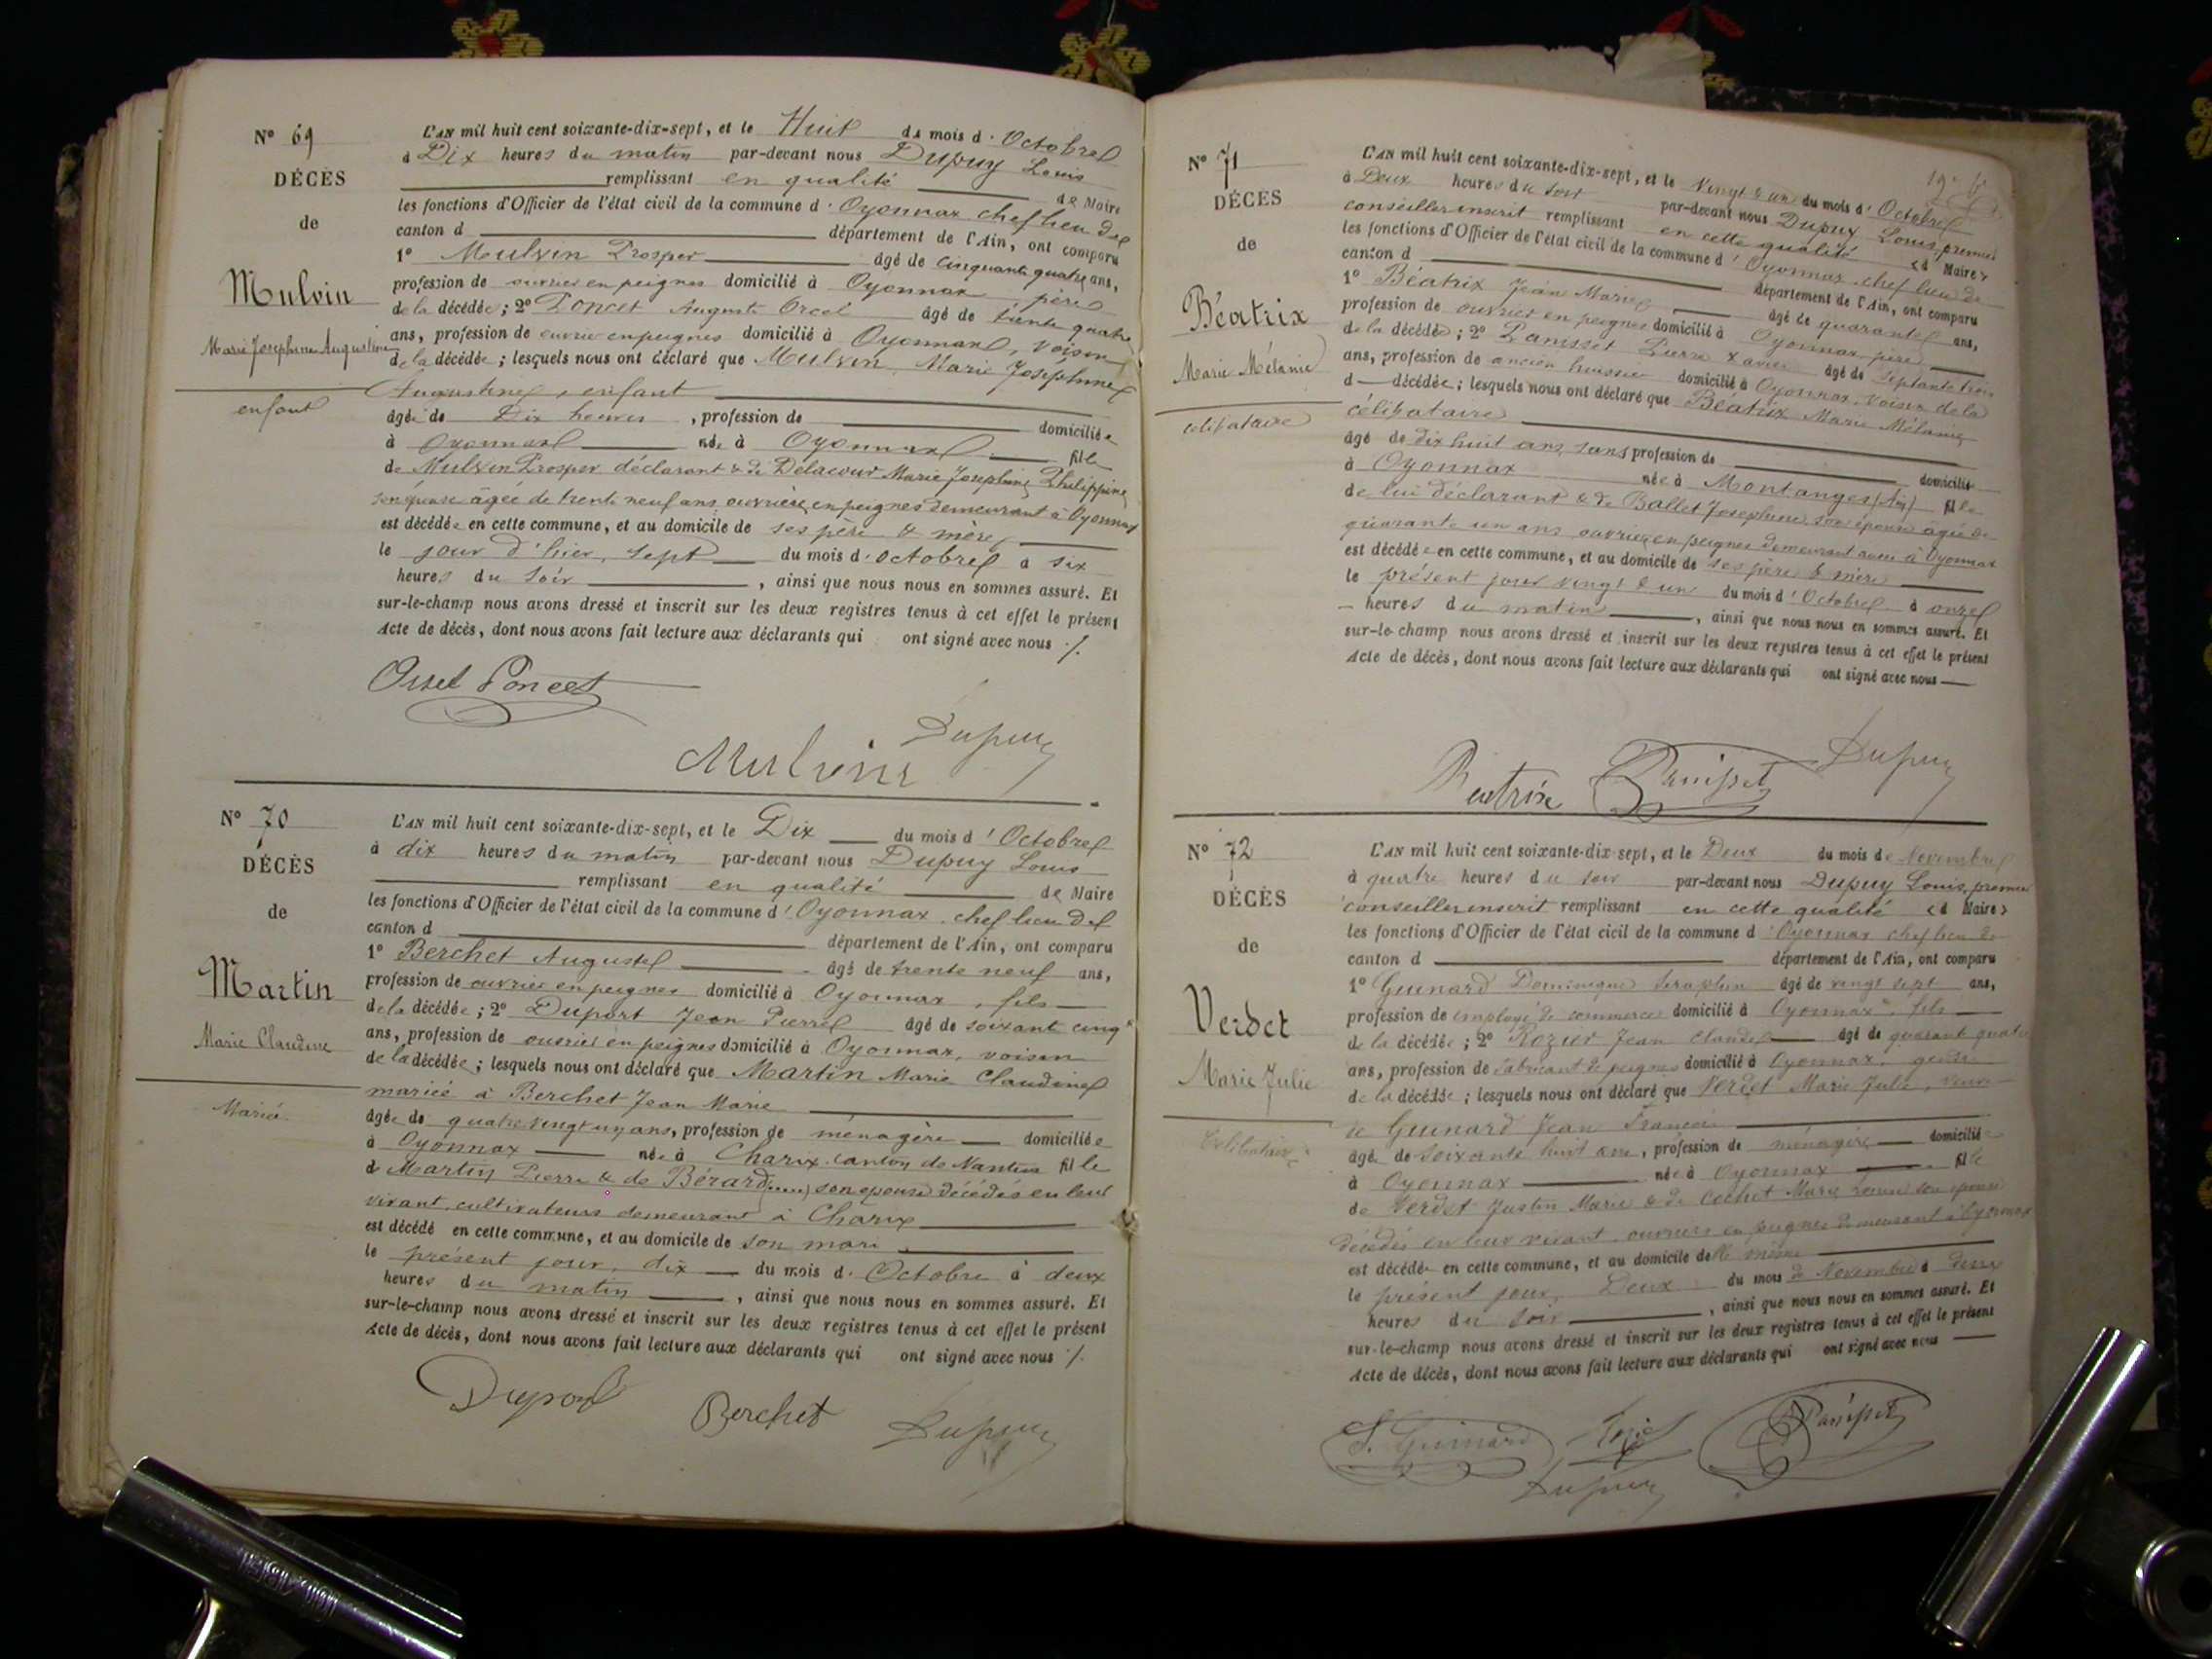 N° 69
DÉCÈS
de
Mulvin
Marie Josephine Augustine
enfant
L'AN mil huit cent soixante-dix-sept, et le Huit du mois d'Octobre
à Dix heures du matin par-devant nous Dupuy Louis
remplissant en qualité de Maire
les fonctions d'Officier de l'état civil de la commune d'Oyonnax chef lieu de
canton d département de l'Ain, ont comparu
1° Mulvin Prosper âgé de cinquante quatre ans,
profession de ouvrier en peignes domicilié à Oyonnax père
de la décédée; 2° Poncet Auguste Orcel âgé de trente quatre
ans, profession de ouvrier en peignes domicilié à Oyonnax, voisin
de la décédée; lesquels nous ont déclaré que Mulvin Marie Josephine
Augustine, enfant
âgée de Dix heures, profession de domiciliée
à Oyonnax née à Oyonnax fille
de Mulvin Prosper déclarant & de Delacour Marie Josephine Philippine
son épouse âgée de trente neuf ans ouvrière en peignes demeurant à Oyonnax
est décédée en cette commune, et au domicile de ses père & mère
le jour d'hier, sept du mois d'octobre à six
heures du soir, ainsi que nous nous en sommes assuré. Et
sur-le-champ nous avons dressé et inscrit sur les deux registres tenus à cet effet le présent
Acte de décès, dont nous avons fait lecture aux déclarants qui ont signé avec nous ./.
Orsel Poncet
Dupuy
Mulvin
N° 70
DÉCÈS
de
Martin
Marie Claudine
Mariée
L'AN mil huit cent soixante-dix-sept, et le Dix du mois d'Octobre
à dix heures du matin par-devant nous Dupuy Louis
remplissant en qualité de Maire
les fonctions d'Officier de l'état civil de la commune d'Oyonnax chef lieu de
canton d département de l'Ain, ont comparu
1° Berchet Auguste âgé de trente neuf ans,
profession de ouvrier en peignes domicilié à Oyonnax, fils
de la décédée; 2° Duport Jean Pierre âgé de soixant cinq
ans, profession de ouvrier en peignes domicilié à Oyonnax, voisin
de la décédée; lesquels nous ont déclaré que Martin Marie Claudine
mariée à Berchet Jean Marie
âgée de quatre vingt un ans, profession de ménagère domiciliée
à Oyonnax née à Charix canton de Nantua fille
d Martin Pierre & de Bérard son épouse décédés en leur
vivant cultivateurs demeurant à Charix
est décédé en cette commune, et au domicile de son mari
le présent jour, dix du mois d'Octobre à deux
heures du matin, ainsi que nous nous en sommes assuré. Et
sur-le-champ nous avons dressé et inscrit sur les deux registres tenus à cet effet le présent
Acte de décès, dont nous avons fait lecture aux déclarants qui ont signé avec nous ./.
Duport
Berchet
Dupuy
N° 71
DÉCÈS
de
Béatrix
Marie Mélanie
célibataire
L'AN mil huit cent soixante-dix-sept, et le Vingt & un du mois d'Octobre
à Deux heures du soir par-devant nous Dupuy Louis, premier
conseiller inscrit remplissant en cette qualité <d Maire>
les fonctions d'Officier de l'état civil de la commune d'Oyonnax chef lieu de
canton d département de l'Ain, ont comparu
1° Béatrix Jean Marie âgé de quarante ans,
profession de ouvrier en peignes domicilié à Oyonnax père
de la décédée; 2° Panisset Pierre Xavier âgé de septante trois
ans, profession de ancien huissier domicilié à Oyonnax. voisin de la
d décédée; lesquels nous ont déclaré que Béatrix Marie Mélanie
célibataire
âgé de dix huit ans, sans profession de domicilié
à Oyonnax née à Montanges (Ain) fille
de lui déclarant & de Ballet Josephine, son épouse âgée de
quarante un ans ouvrière en peignes demeurant avec à Oyonnax
est décédée en cette commune, et au domicile de ses père & mère
le présent jour vingt & un du mois d'Octobre à onze
heures du matin, ainsi que nous nous en sommes assuré. Et
sur-le-champ nous avons dressé et inscrit sur les deux registres tenus à cet effet le présent
Acte de décès, dont nous avons fait lecture aux déclarants qui ont signé avec nous
Beatrix
Panisset
Dupuy
N° 72
DÉCÈS
de
Verdet
Marie Julie
Célibataire
L'AN mil huit cent soixante-dix-sept, et le Deux du mois de Novembre
à quatre heures du soir par-devant nous Dupuy Louis, premier
conseiller inscrit remplissant en cette qualité <d Maire>
les fonctions d'Officier de l'état civil de la commune d'Oyonnax chef lieu de
canton d département de l'Ain, ont comparu
1° Guinard Dominique Séraphin âgé de vingt sept ans,
profession de employé de commerce domicilié à Oyonnax, fils
de la décédée; 2° Rozier Jean Claude âgé de quarant quatre
ans, profession de fabricant de peignes domicilié à Oyonnax. gendre
de la décédée; lesquels nous ont déclaré que Verdet Marie Julie, veuve
de Guinard Jean François
âgé de soixante huit ans, profession de ménagère domiciliée
à Oyonnax née à Oyonnax fille
de Verdet Justin Marie & de Cochet Marie son épouse
décédés en leur vivant ouvriers en peignes demeurant à Oyonnax
est décédée en cette commune, et au domicile de
le présent jour, Deux du mois de Novembre à deux
heures du soir, ainsi que nous nous en sommes assuré. Et
sur-le-champ nous avons dressé et inscrit sur les deux registres tenus à cet effet le présent
Acte de décès, dont nous avons fait lecture aux déclarants qui ont signé avec nous
S. Guinard
Panisset
Dupuy